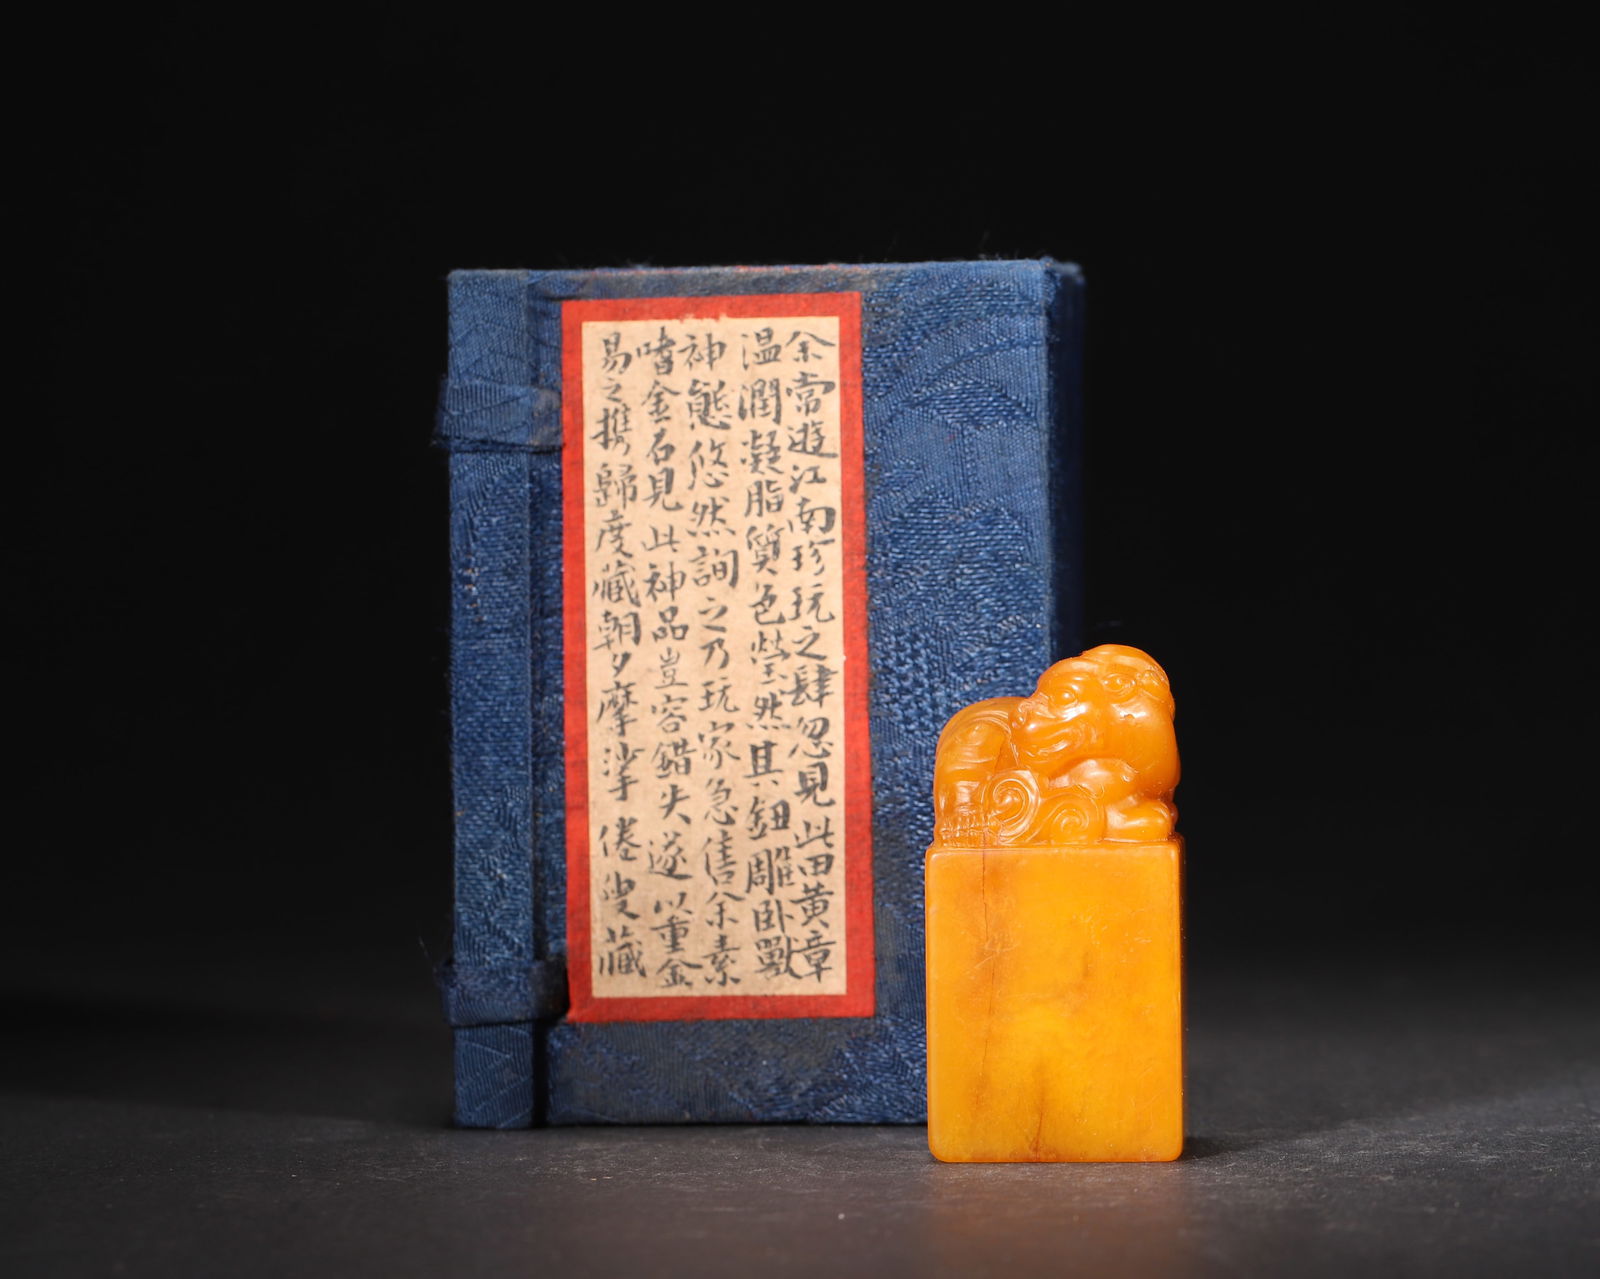 余嘗遊江南珍玩之肆忽見此田黃章
温潤凝脂質色瑩然其鈕雕卧獸
神態悠然詢之乃玩家急售余素
嗜金石見此神品豈容錯失遂以重金
易之攜歸度藏朝夕摩挲 倦叟藏